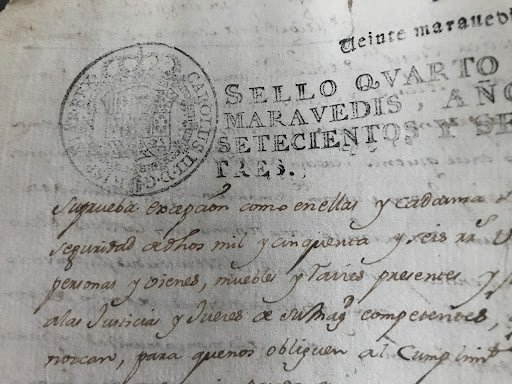 Veinte maraved
CAROLUS III. D. G.
SELLO QVARTO
MARAVEDIS, AÑO
SETECIENTOS Y SE
TRES.
Suprueba excepcion como enellas y cadauna d
seguridad dedhos mil y cinquenta y seis rs
personas y vienes, muebles y raices presentes y
alas Justicias y Jueces de su Magd competentes,
nozcan, para quenos obliguen al Cumplimto